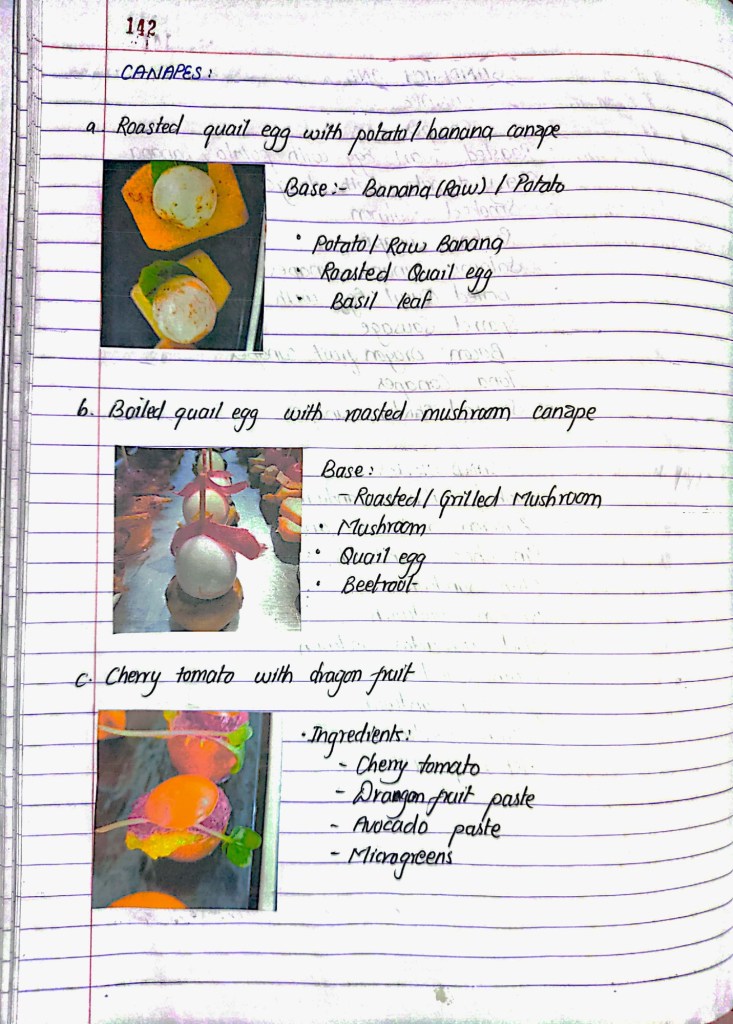 142
CANAPES:
a. Roasted quail egg with potato/banana canape
Base:- Banana (Raw) / Potato
• Potato/ Raw Banana
• Roasted Quail egg
• Basil leaf
b. Boiled quail egg with roasted mushroom canape
Base:
- Roasted / Grilled Mushroom
• Mushroom
• Quail egg
• Beetroot
c. Cherry tomato with dragon fruit
• Ingredients:
- Cherry tomato
- Drangon fruit paste
- Avocado paste
- Microgreens